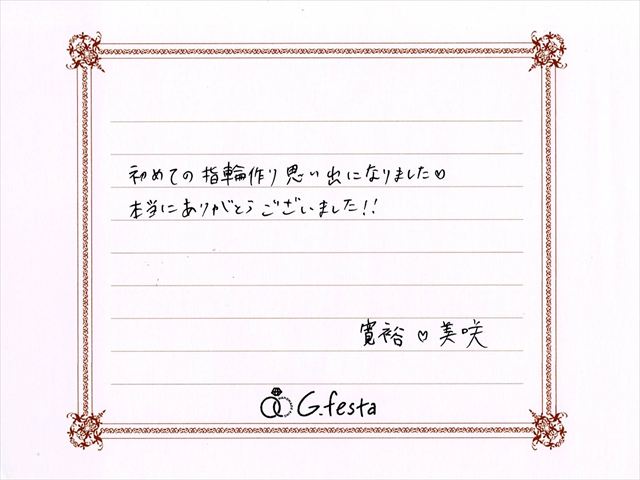 初めての指輪作り思い出になりました♡
本当にありがとうございました!!
寛裕♡美咲
G.festa